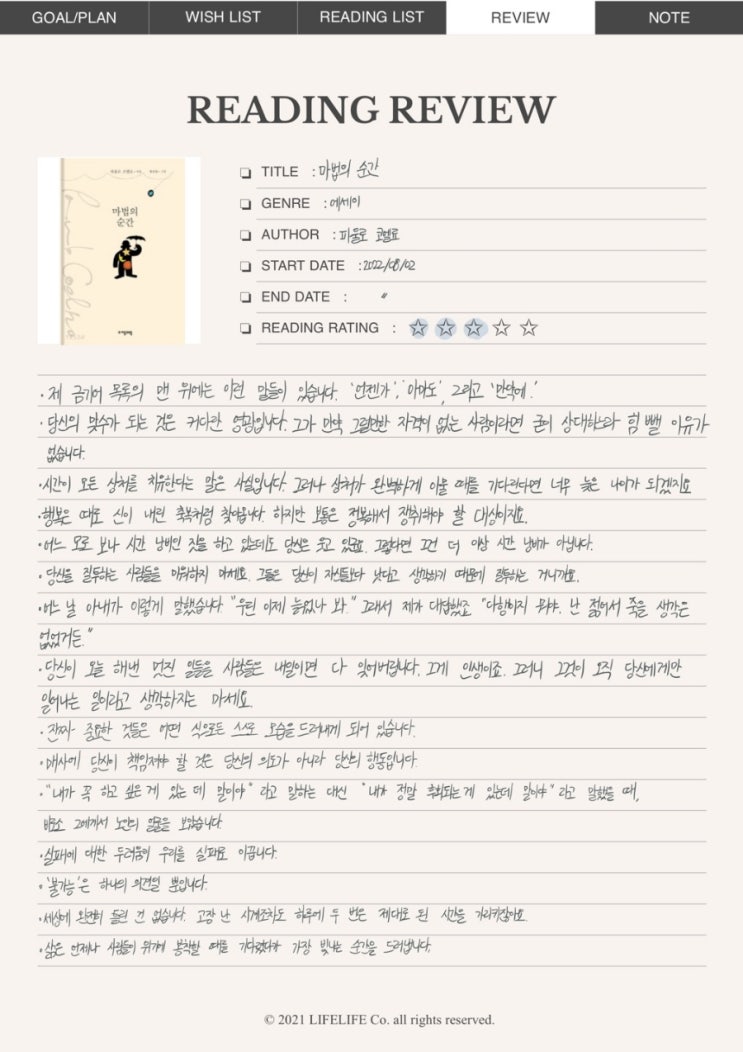 GOAL/PLAN
WISH LIST
READING LIST
REVIEW
NOTE
READING REVIEW
마법의
순간
TITLE : 마법의 순간
GENRE : 에세이
AUTHOR : 파울로 코엘료
START DATE : 2022/08/02
END DATE : 〃
READING RATING : ☆☆☆☆☆
· 제 금기어 목록의 맨 위에는 이런 말들이 있습니다. '언젠가', '아마도', 그리고 '만약에.'
· 당신의 맞수가 되는 것은 커다란 영광입니다. 그가 만약 그럴만한 자격이 없는 사람이라면 굳이 상대하느라 힘 뺄 이유가
없습니다.
· 시간이 모든 상처를 치유한다는 말은 사실입니다. 그러나 상처가 완벽하게 아물 때를 기다린다면 너무 늦은 나이가 되겠지요
· 행복은 때로 신이 내린 축복처럼 찾아옵니다. 하지만 보통은 정복해서 쟁취해야 할 대상이지요.
· 어느 모로 보나 시간 낭비인 짓을 하고 있는데도 당신은 웃고 있군요. 그렇다면 그건 더 이상 시간 낭비가 아닙니다.
· 당신을 질투하는 사람들을 미워하지 마세요. 그들은 당신이 자신들보다 낫다고 생각하기 때문에 질투하는 거니까요.
· 어느 날 아내가 이렇게 말했습니다 "우린 이제 늙었나 봐." 그래서 제가 대답했죠 "다행이지 뭐야. 난 젊어서 죽을 생각은
없었거든."
· 당신이 오늘 해낸 멋진 일들을 사람들은 내일이면 다 잊어버립니다. 그게 인생이죠. 그러니 그것이 오직 당신에게만
일어나는 일이라고 생각하지는 마세요.
· 진짜 중요한 것들은 어떤 식으로든 스스로 모습을 드러내게 되어 있습니다.
· 매사에 당신이 책임져야 할 것은 당신의 의도가 아니라 당신의 행동입니다.
· "내가 꼭 하고 싶은 게 있는 데 말이야" 라고 말하는 대신 "내가 정말 후회되는 게 있는데 말이야" 라고 말했을 때,
비로소 그에게서 노인의 얼굴을 보았습니다.
· 실패에 대한 두려움이 우리를 실패로 이끕니다.
· '불가능'은 하나의 의견일 뿐입니다.
· 세상에 완전히 틀린 건 없습니다. 고장 난 시계조차도 하루에 두 번은 제대로 된 시간을 가리키잖아요.
· 삶은 언제나 사람들이 위기에 봉착할 때를 기다렸다가 가장 빛나는 순간을 드러냅니다.
© 2021 LIFELIFE Co. all rights reserved.